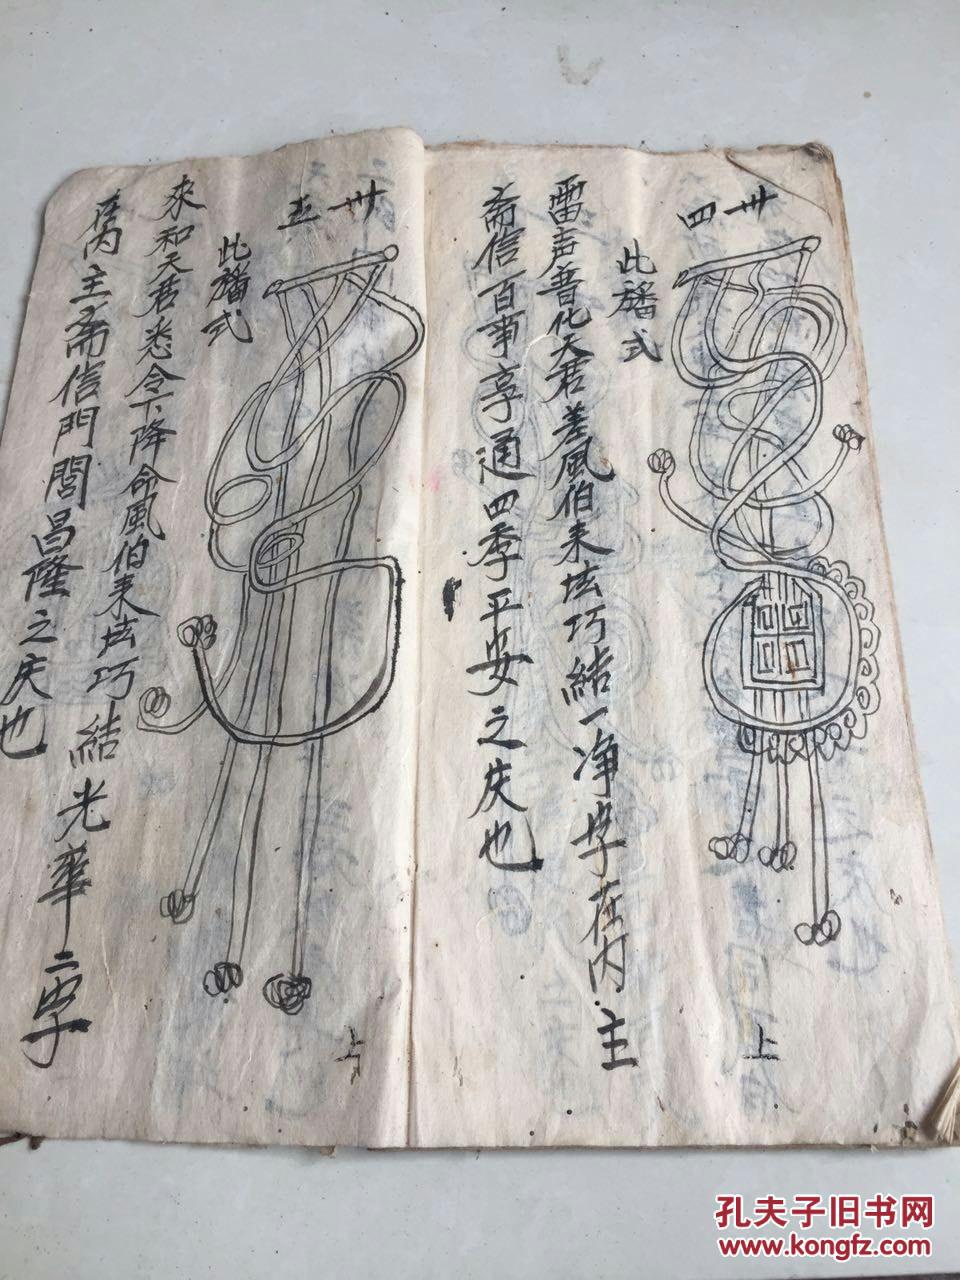 卅四
此旛式
雷声普化天君差風伯来坛巧結一净字在内主
斋信百事享通四季平安之庆也
上
卅五
此旛式
來和天君悉令下降命風伯来坛巧結光華二字
在内主斋信門閭昌隆之庆也
上
孔夫子旧书网
www.kongfz.com